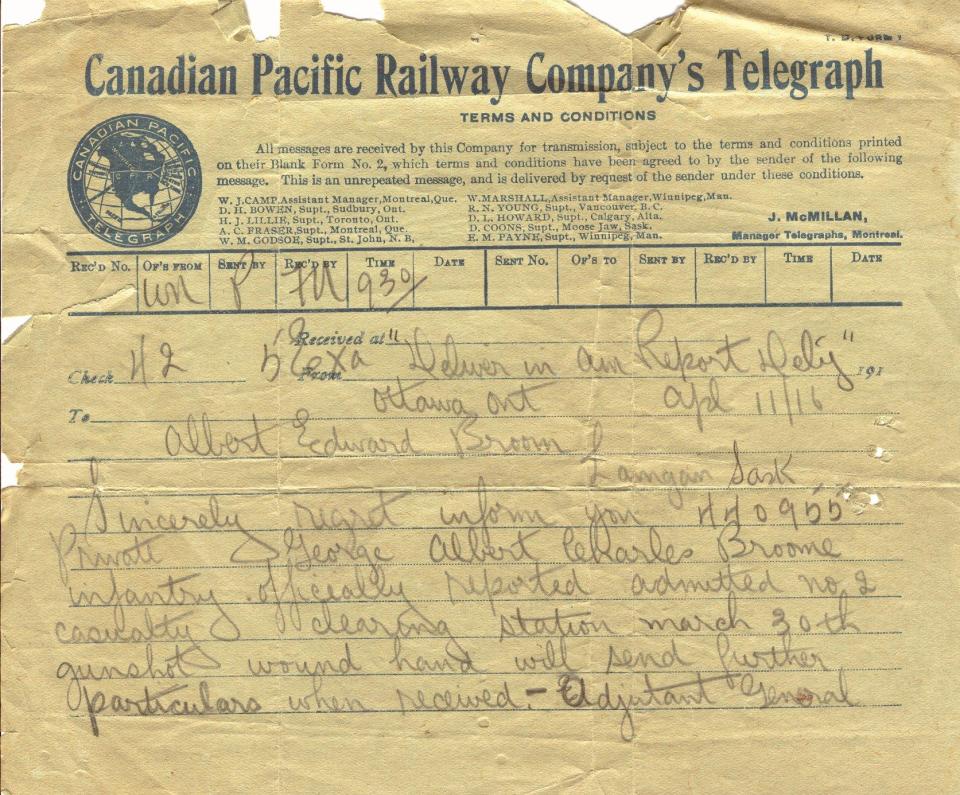 T. D. FORM 1
Canadian Pacific Railway Company's Telegraph
TERMS AND CONDITIONS
CANADIAN PACIFIC
TELEGRAPH
All messages are received by this Company for transmission, subject to the terms and conditions printed
on their Blank Form No. 2, which terms and conditions have been agreed to by the sender of the following
message. This is an unrepeated message, and is delivered by request of the sender under these conditions.
W. J. CAMP, Assistant Manager, Montreal, Que. W. MARSHALL, Assistant Manager, Winnipeg, Man.
D. H. BOWEN, Supt., Sudbury, Ont. R. N. YOUNG, Supt., Vancouver, B. C.
H. J. LILLIE, Supt., Toronto, Ont. D. L. HOWARD, Supt., Calgary, Alta.
A. C. FRASER, Supt., Montreal, Que. D. COONS, Supt., Moose Jaw, Sask.
W. M. GODSOE, Supt., St. John, N. B. E. M. PAYNE, Supt., Winnipeg, Man.
J. McMILLAN,
Manager Telegraphs, Montreal.
REC'D No. OF'S FROM SENT BY REC'D BY TIME DATE SENT No. OF'S TO SENT BY REC'D BY TIME DATE
P 930
Received at
Check 42 From "Deliver in am Report Dely" 191
Ottawa ont Apl 11/16
To
Albert Edward Broom
Sask
Sincerely regret inform you 440955
Privott George Albert Charles Broome
infantry officially reported admitted no 2
casualty clearing station march 30th
gunshot wound hand will send further
particulars when received - Adjutant General